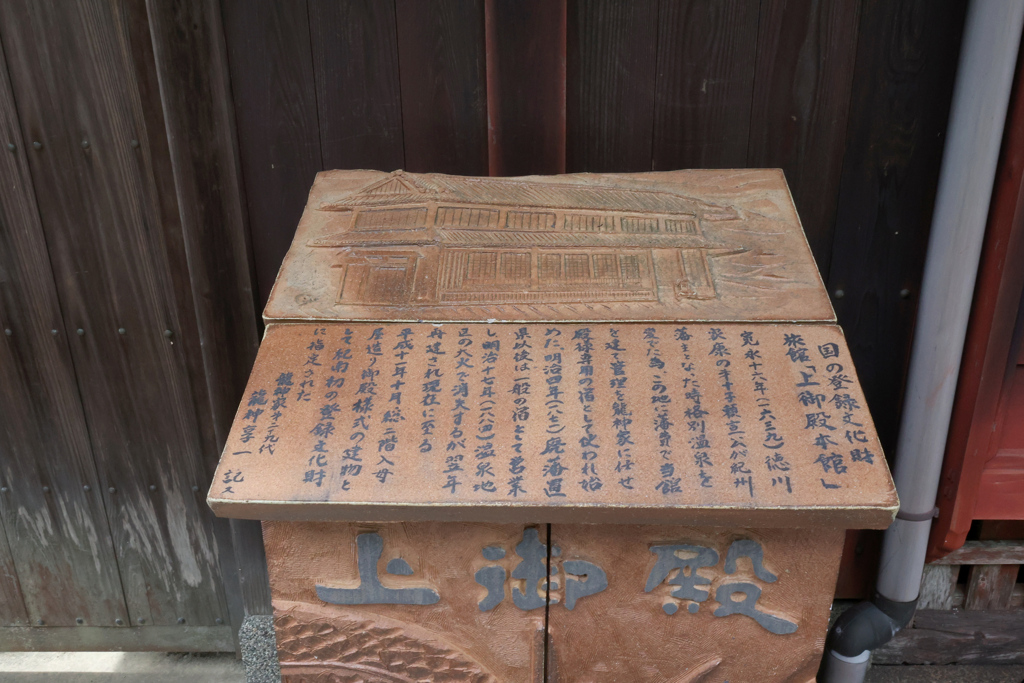 国の登録文化財
旅館「上御殿本館」
寛永十六年(一六三九)徳川
頼宣が紀州
藩主となった時格別温泉を
愛でた為、この地に藩費で当館
を建て管理を龍神家に任せ
殿様専用の宿として使われ始
めた、明治四年(一八七一)廃藩置
県以後は一般の宿として営業
し明治十七年(一八八四)温泉地
の大火で消失するが翌年
再建され現在に至る
平成十一年十月総二階入母
屋造り御殿様式の建物と
して紀南初の登録文化財
に指定された
龍神家第二九代
龍神享一 記ス
上御殿